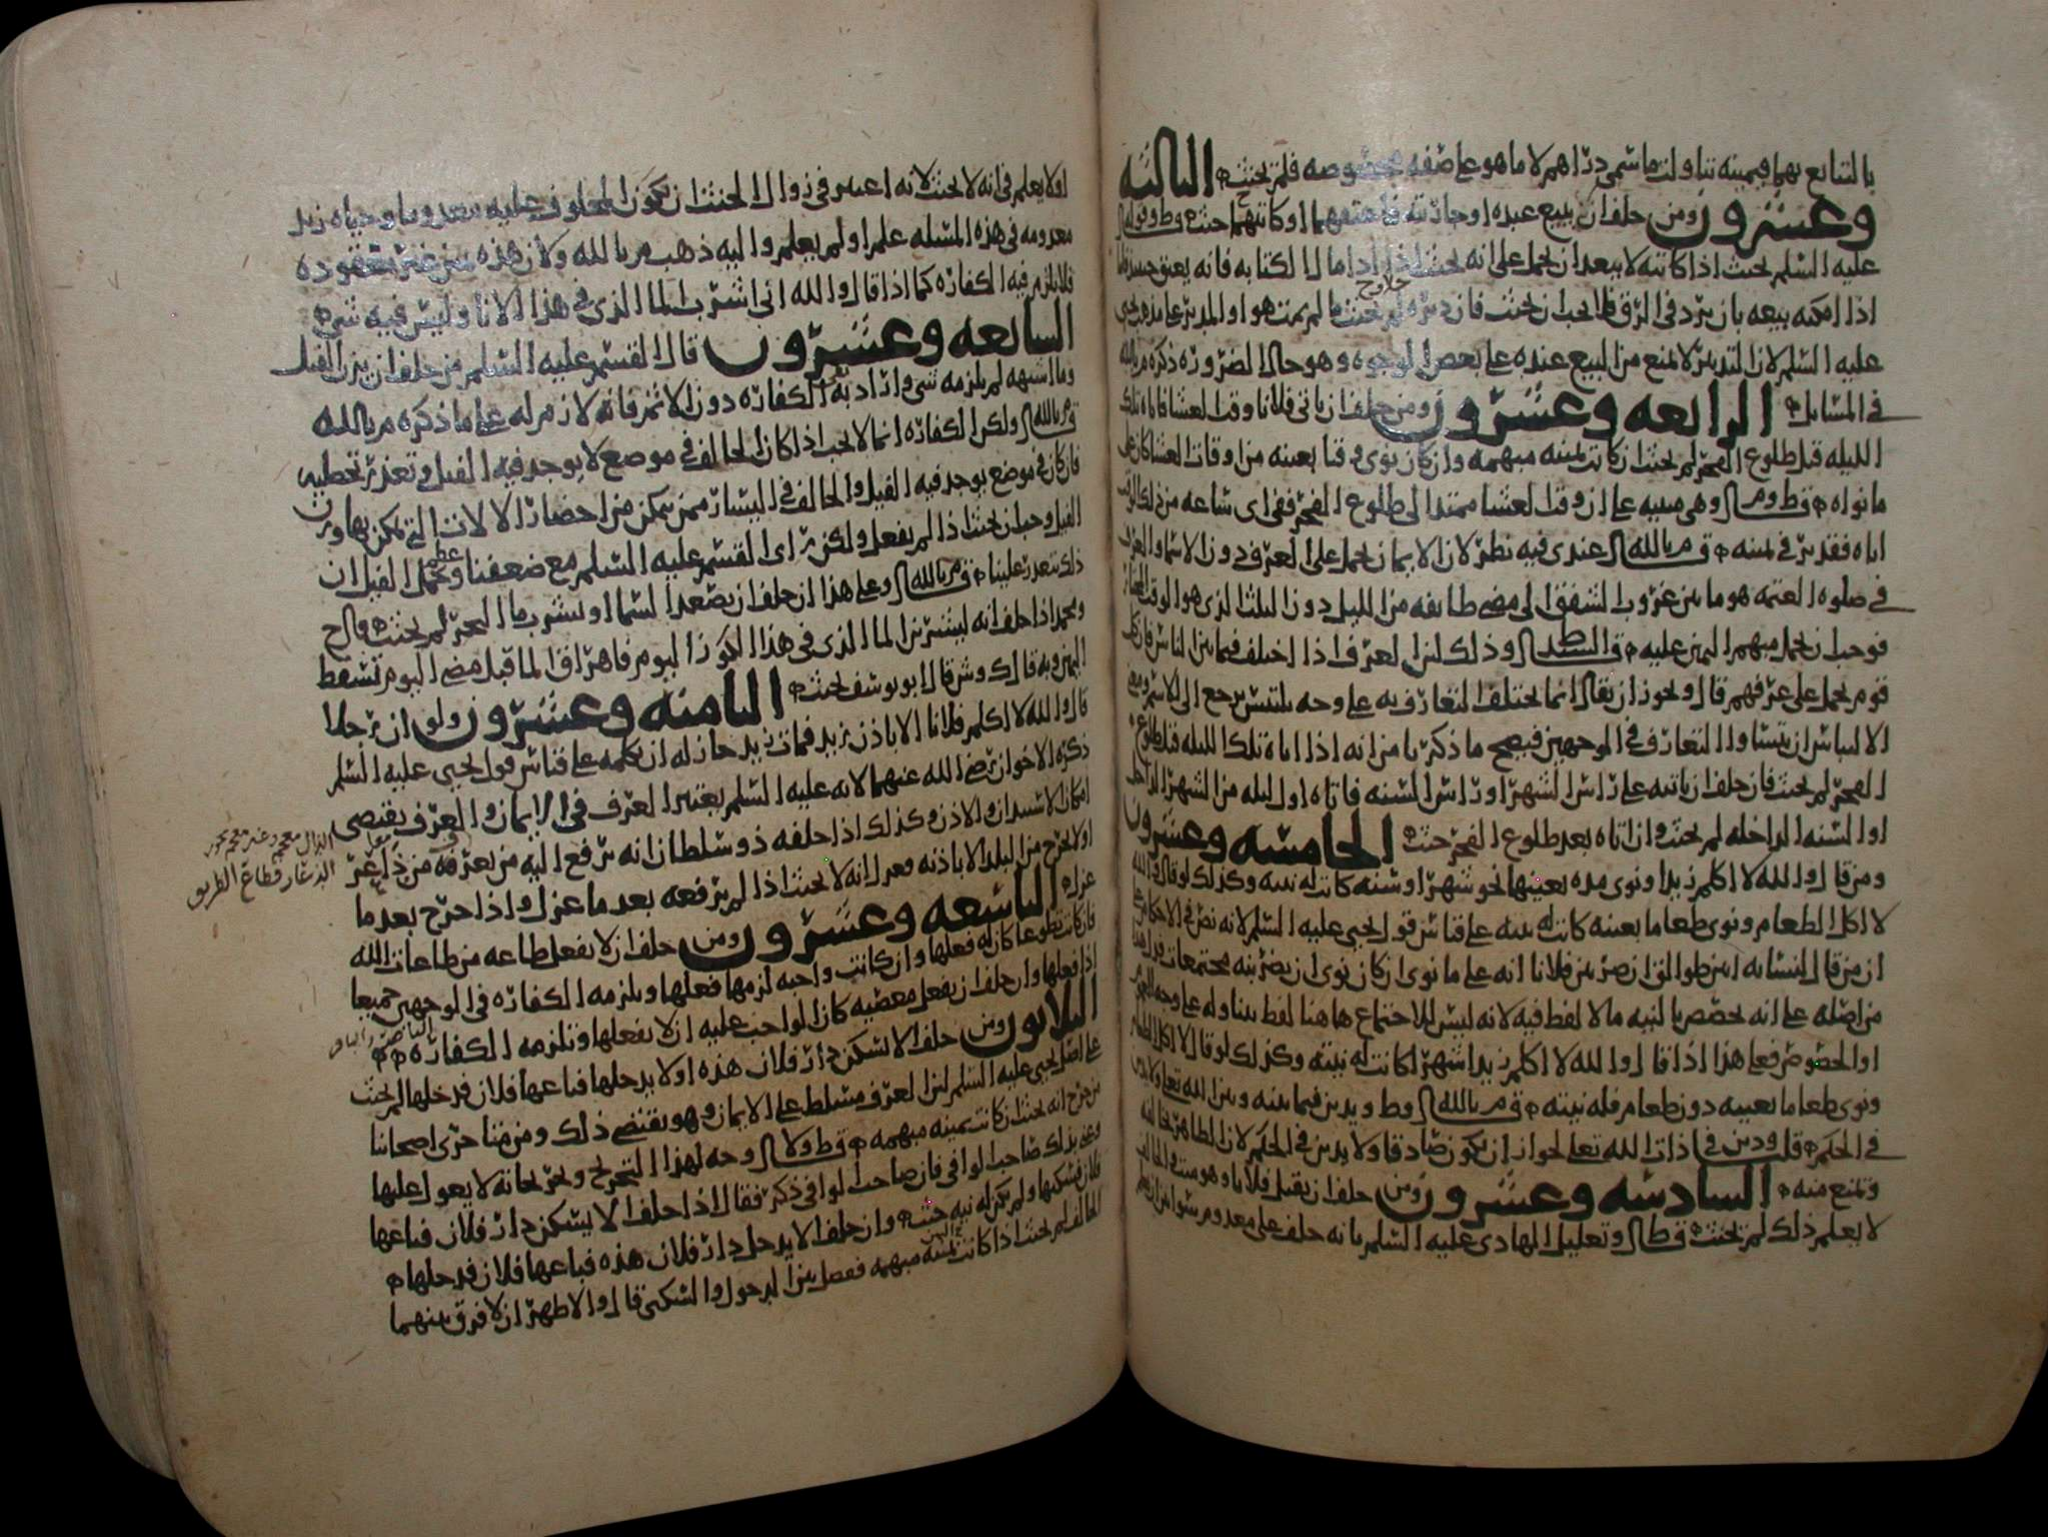 بالتبايع بهما فيمينه تناولت ما سمي دراهم لا ما هو على صفه مخصوصه فلم يحنث الثالثه
وعشرون ومن حلف ان يبيع عبده او جاريته فاعتقهما او كاتبهما حنث قط وقوله
عليه السلم يحنث اذا كاتبه لا يبعد ان يحمل على انه يحنث اذا ادا مال الكتابه فانه يعتق حينئذ فاما
اذا امكنه بيعه بان يرد في الرق فلا يجب ان يحنث فان دبره لم يحنث ما لم يمت هو او المدبر على مذهب يحيى
عليه السلم لان التدبير لا يمنع من البيع عنده على بعض الوجوه وهو حال الضروره ذكره م بالله
في المسايل الرابعه وعشرون ومن حلف ان ياتي فلانا وقت العشا فاتاه تلك
الليله قبل طلوع الفجر لم يحنث ان كانت يمينه مبهمه وان كان نوى وقتا بعينه من اوقات العشا كان على
ما نواه قط وم وهي مبنيه على ان وقت العشا ممتد الى طلوع الفجر ففي اي ساعه من ذلك الوقت
اتاه فقد بر في يمينه ق م بالله عندي فيه نظر لان الايمان تحمل على العرف دون الاسما والعرف
في صلوه العتمه هو ما بين غروب الشفق الى مضي طايفه من الليل دون الثلث الذي هو الوقت المختار
فوجب ان تحمل مبهم اليمين عليه ق السيد ط وذلك لان العرف اذا اختلف فيما بين الناس فان كل
قوم يحمل على عرفهم قال ويجوز ان يقال انما يختلف التعارف به على وجه يلتبس يرجع الى الاسم ومعنى
الالتباس ان يتساوا التعارف في الوجهين فيصح ما ذكره يا من انه اذا اتاه تلك الليله قبل طلوع
الفجر لم يحنث فان حلف ان ياتيه على راس الشهر او راس السنه فاتاه اول ليله من الشهر الداخل
او السنه الداخله لم يحنث وان اتاه بعد طلوع الفجر حنث الخامسه وعشرون
ومن قال والله لا اكلم زيدا ونوى مده بعينها نحو شهر او سنه كانت له نيته وكذلك لو قال والله
لا اكل الطعام ونوى طعاما بعينه كانت له نيته على قياس قول يحيى عليه السلم لانه نص في الاحكام على
ان من قال لنسائه انتن طوالق ان ضربتن فلانا انه على ما نوى ان كان نوى ان يضربنه مجتمعات فدل هذا
من اصله على انه يخصص بالنيه ما لا لفظ فيه لانه ليس للاجتماع هاهنا لفظ يتناوله على وجه العموم
او الخصوص فعلى هذا اذا قال والله لا اكلم زيدا شهرا كانت له نيته وكذلك لو قال لا اكل الطعام
ونوى طعاما بعينه دون طعام فله نيته ق م بالله وط ويدين فيما بينه وبين الله تعلى ولا يدين
في الحكم قلت ودين في ذات الله تعلى لجواز ان يكون صادقا ولا يدين في الحكم لان الظاهر يخالفه
ويمنع منه السادسه وعشرون ومن حلف ان يقتل فلانا وهو ميت والحالف
لا يعلم ذلك لم يحنث ق ط وتعليل الهادي عليه السلم بانه حلف على معدوم سوا من ان يعلم
او لا يعلم في انه لا يحنث لانه اعتبر في زوال الحنث ان يكون المحلوف عليه معدوما وحياه زيد
معدومه في هذه المسله علم او لم يعلم واليه ذهب م بالله ولان هذه يمين غير معقوده
فلا يلزم فيه الكفاره كما اذا قال والله اني اشرب الما الذي في هذا الانا وليس فيه شي
السابعه وعشرون قال القسم عليه السلم من حلف ان يزن الفيل
وما اشبهه لم يلزمه شي واراد به الكفاره دون الاثم فانه لازم له على ما ذكره م بالله
ق م بالله ولكن الكفاره انما لا تجب اذا كان الحالف في موضع لا يوجد فيه الفيل وتعذر تحصيله
فان كان في موضع يوجد فيه الفيل والحالف في اليسار ممن يمكن من احضار الالات التي يمكن بها وزن
الفيل وجب ان يحنث اذا لم يفعل ولكن راى القسم عليه السلم مع ضعفنا وعظم الفيل ان
ذلك يتعذر علينا ق م بالله وعلى هذا ان حلف ان يصعد السما او يشرب ما البحر لم يحنث وقال ح
ومحمد اذا حلف انه ليشربن الما الذي في هذا الكوز اليوم فاهراق الما قبل مضي اليوم تسقط
اليمين وبه قال ك وش قال ابو يوسف يحنث الثامنه وعشرون ولو ان رجلا
قال والله لا اكلم فلانا الا باذن زيد فمات زيد جاز له ان يكلمه على قياس قول يحيى عليه السلم
ذكره الاخوان رضي الله عنهما لانه عليه السلم يعتبر العرف في الايمان والعرف يقتضي
امكان الاستيذان والاذن وكذلك اذا حلفه ذو سلطان انه يرفع اليه من يعرفه من ذاعر
او لا يخرج من البلد الا باذنه فعزل انه لا يحنث اذا لم يرفعه بعد ما عزل واذا خرج بعد ما
عزل التاسعه وعشرون ومن حلف ان لا يفعل طاعه من طاعات الله
فان كانت تطوعا كان له فعلها وان كانت واجبه لزمها فعلها ويلزمه الكفاره في الوجهين جميعا
اذا فعلها وان حلف ان يفعل معصيه كان الواجب عليه ان لا يفعلها وتلزمه الكفاره
الثلاثون ومن حلف الا يسكن دار فلان هذه او لا يدخلها فباعها فلان فدخلها لم يحنث
على اصل يحيى عليه السلم لان العرف مسلط على الايمان وهو يقتضي ذلك ومن متاخرى اصحابنا
من خرج انه يحنث ان كانت يمينه مبهمه ق ط ولا وجه لهذا التخريج وتخريجاته لا يعول عليها
وعنى بذلك صاحب الوافي فان صاحب الوافي ذكر فقال اذا حلف لا يسكن دار فلان فباعها
فلان فسكنها ولم يكن له نيه حنث وان حلف لا يدخل دار فلان هذه فباعها فلان فدخلها
الحالف لم يحنث اذا كانت يمينه مبهمه ففصل بين الدخول والسكنى قال والاظهر ان لا فرق بينهما
الذال معجم وغير معجم يجوز
الدعار قطاع الطريق